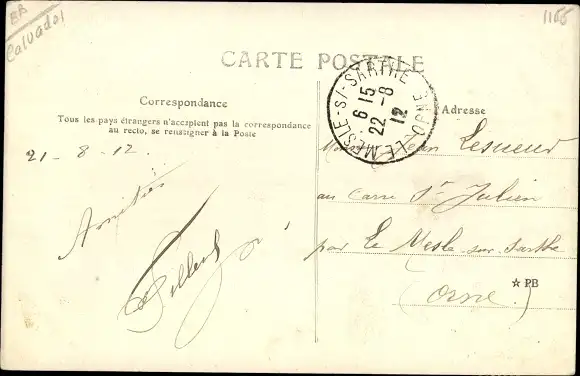 EB
Calvados
1166
CARTE POSTALE
Correspondance
Tous les pays étrangers n'acceptent pas la correspondance
au recto, se renseigner à la Poste
Adresse
LE MESLE-S/-SARTHE ORNE
6 15
22 -8
12
21 - 8 - 12.
Amitiés
Jean Lesueur
au carre St Julien
par Le Mesle-sur-Sarthe
(Orne.)
☆ PB